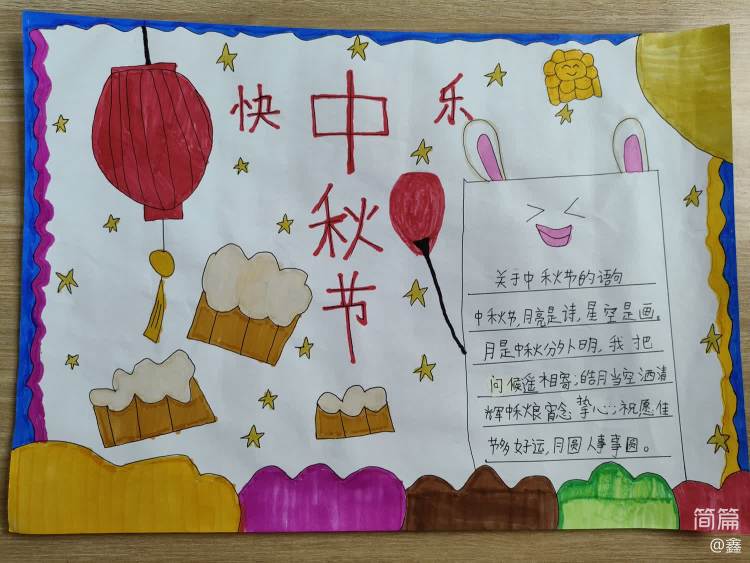 快 乐
中秋节
关于中秋节的语句
中秋节,月亮是诗,星空是画。
月是中秋分外明,我把
问候遥相寄;皓月当空洒清
辉,中秋良宵念挚心;祝愿佳
节多好运,月圆人事事圆。
简篇
@鑫